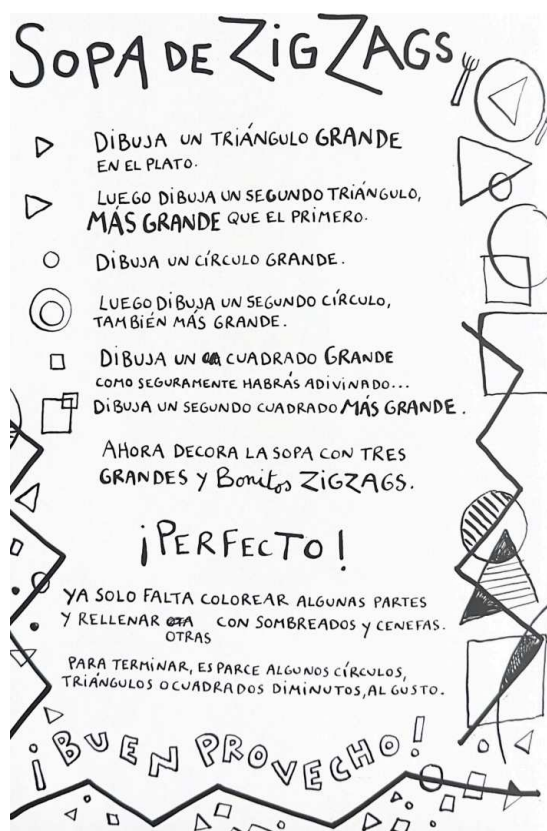 SOPA DE ZiGZAGS
DIBUJA UN TRIÁNGULO GRANDE
EN EL PLATO.
LUEGO DIBUJA UN SEGUNDO TRIÁNGULO,
MÁS GRANDE QUE EL PRIMERO.
DIBUJA UN CÍRCULO GRANDE.
LUEGO DIBUJA UN SEGUNDO CÍRCULO,
TAMBIÉN MÁS GRANDE.
DIBUJA UN CUADRADO GRANDE
COMO SEGURAMENTE HABRÁS ADIVINADO...
DIBUJA UN SEGUNDO CUADRADO MÁS GRANDE.
AHORA DECORA LA SOPA CON TRES
GRANDES Y Bonitos ZiGZAGS.
¡PERFECTO!
YA SOLO FALTA COLOREAR ALGUNAS PARTES
Y RELLENAR OTRAS CON SOMBREADOS Y CENEFAS.
PARA TERMINAR, ESPARCE ALGUNOS CÍRCULOS,
TRIÁNGULOS O CUADRADOS DIMINUTOS, AL GUSTO.
¡BUEN PROVECHO!